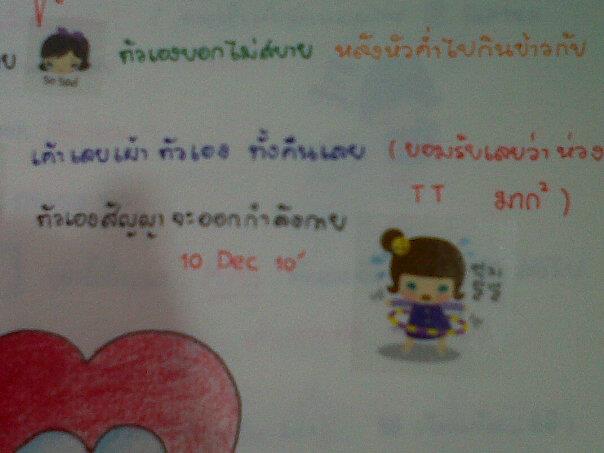 ย ตัวเองบอกไม่สบาย หลังหัวค่ำไปกินข้าวกับ
So Sad
เค้าเลยเฝ้า ตัวเอง ทั้งคืนเลย (ยอมรับเลยว่า ห่วง
TT มาก² )
ตัวเองสัญญา จะออกกำลังกาย
10 Dec 10'